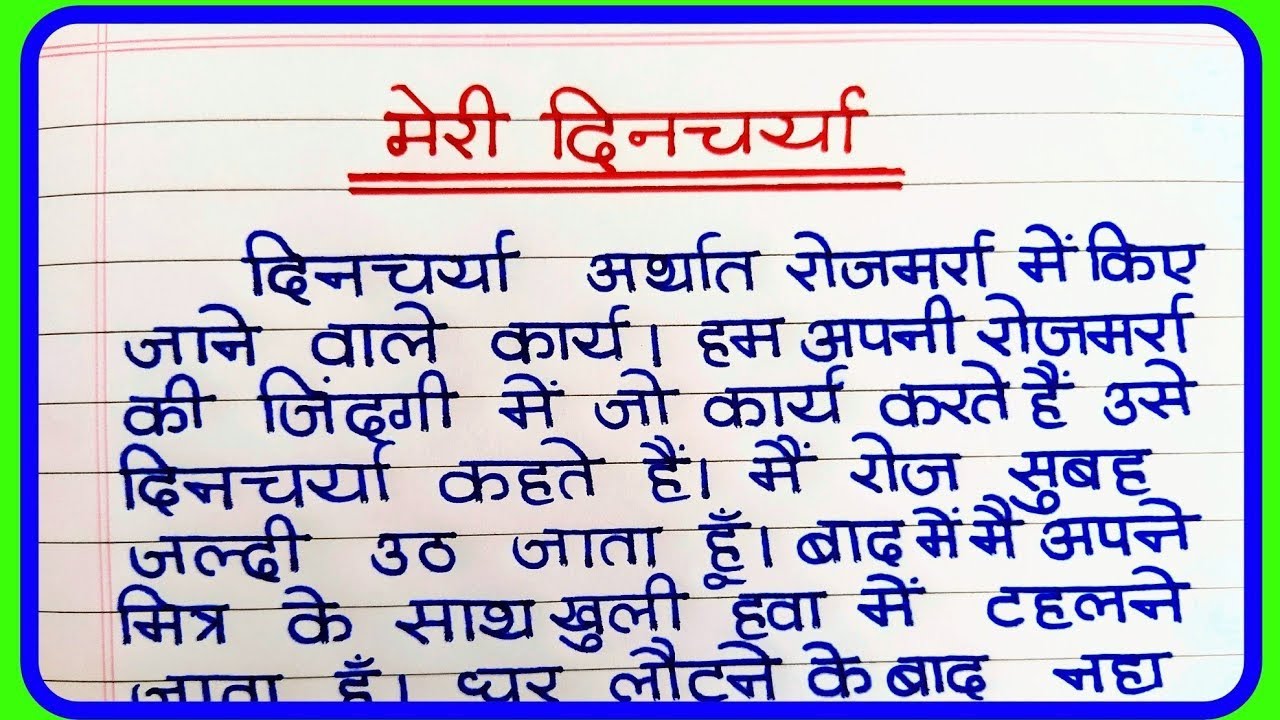 मेरी दिनचर्या
दिनचर्या अर्थात रोजमर्रा में किए
जाने वाले कार्य। हम अपनी रोजमर्रा
की जिंदगी में जो कार्य करते हैं उसे
दिनचर्या कहते हैं। मैं रोज सुबह
जल्दी उठ जाता हूँ। बाद में मैं अपने
मित्र के साथ खुली हवा में टहलने
जाता हूँ। घर लौटने के बाद